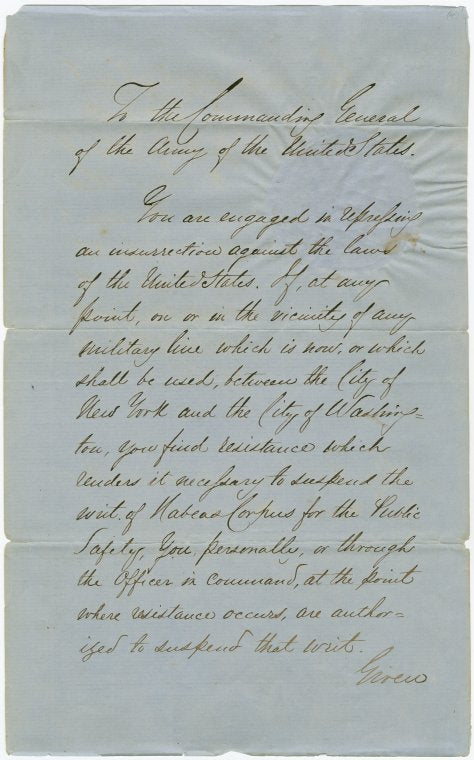 To the Commanding General
of the Army of the United States.
You are engaged in repressing
an insurrection against the laws
of the United States. If, at any
point, on or in the vicinity of any
military line which is now, or which
shall be used, between the City of
New York and the City of Washing=
ton, you find resistance which
renders it necessary to suspend the
writ. of Habeas Corpus for the Public
Safety, You, personally, or through
the Officer in command, at the point
where resistance occurs, are author=
ized to suspend that writ.
Given